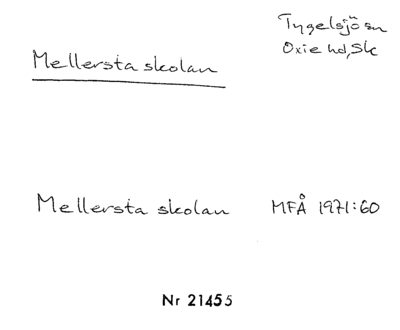 Tygelsjö sn
Oxie hd, Sk
Mellersta skolan
Mellersta skolan MFÅ 1971:60
Nr 21455